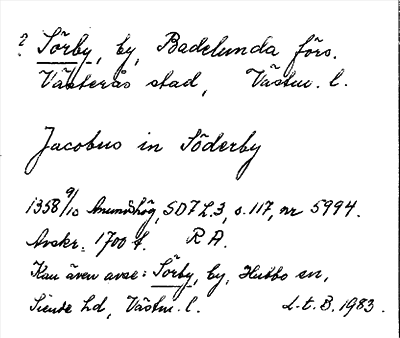 ? Sörby, by, Badelunda förs.
Västerås stad, Västm. l.
Jacobus in Söderby
1358 9/10 Anundshög, SD 7 h. 3, s. 117, nr 5994.
Avskr. 1700 t. RA.
Kan även avse: Sörby, by, Hubbo sn,
Siende hd, Västm. l. L-t. B. 1983.